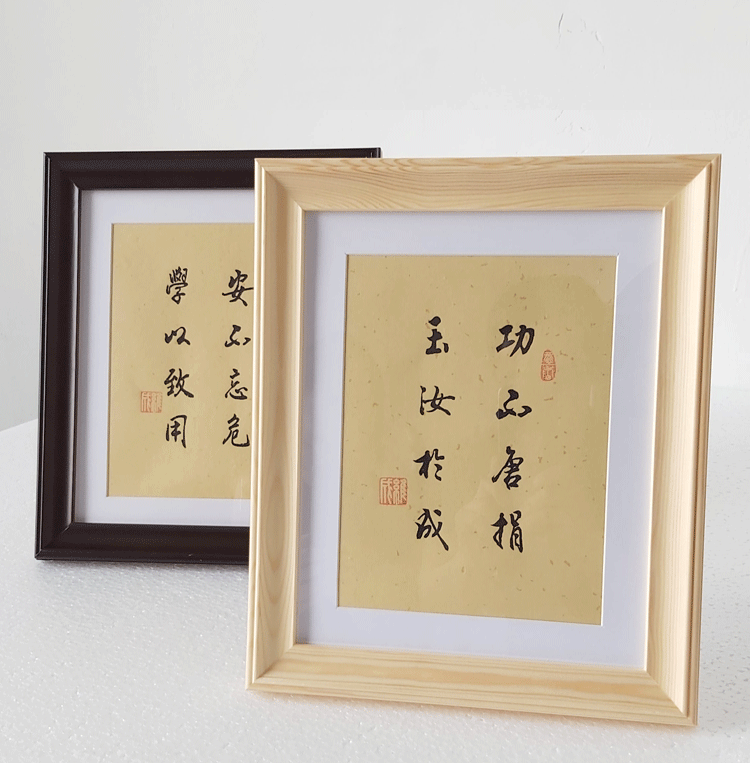 功不唐捐
玉汝於成
安不忘危
學以致用